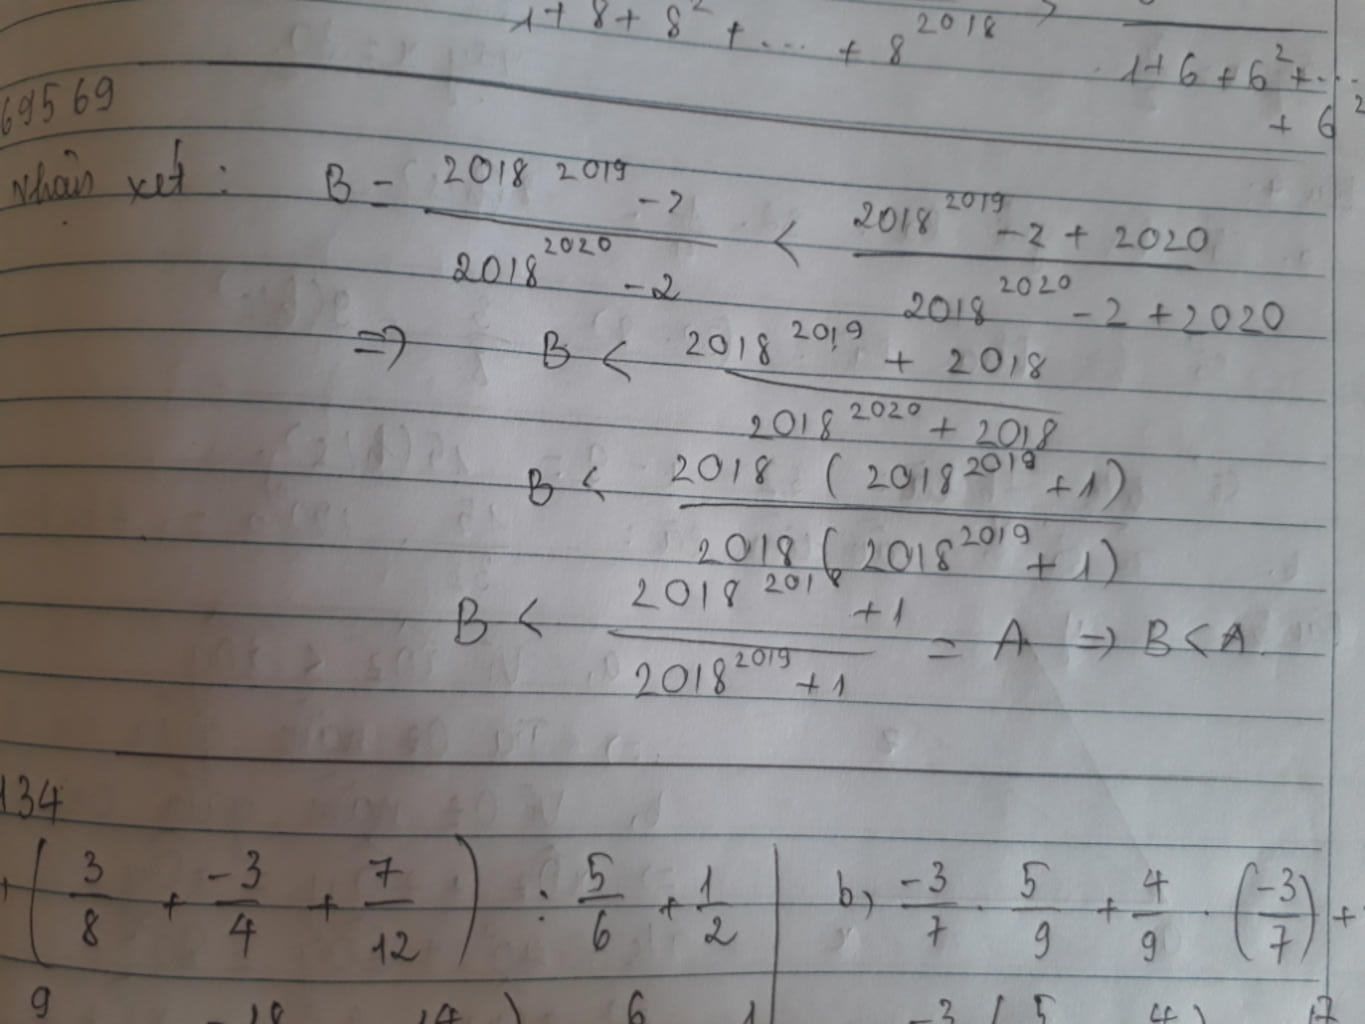 1 + 8 + 8² + .... + 8²⁰¹⁸ >
1 + 6 + 6² + ...
+ 6²
69569
Nhận xét : B = (2018²⁰¹⁹ - 2)/(2018²⁰²⁰ - 2) < (2018²⁰¹⁹ - 2 + 2020)/(2018²⁰²⁰ - 2 + 2020)
=> B < (2018²⁰¹⁹ + 2018)/(2018²⁰²⁰ + 2018)
B < 2018 (2018²⁰¹⁹ + 1)/2018 (2018²⁰¹⁹ + 1)
B < (2018²⁰¹⁸ + 1)/(2018²⁰¹⁹ + 1) = A => B < A.
134
(3/8 + -3/4 + 7/12) : 5/6 + 1/2
b) -3/7 . 5/9 + 4/9 . (-3/7) +